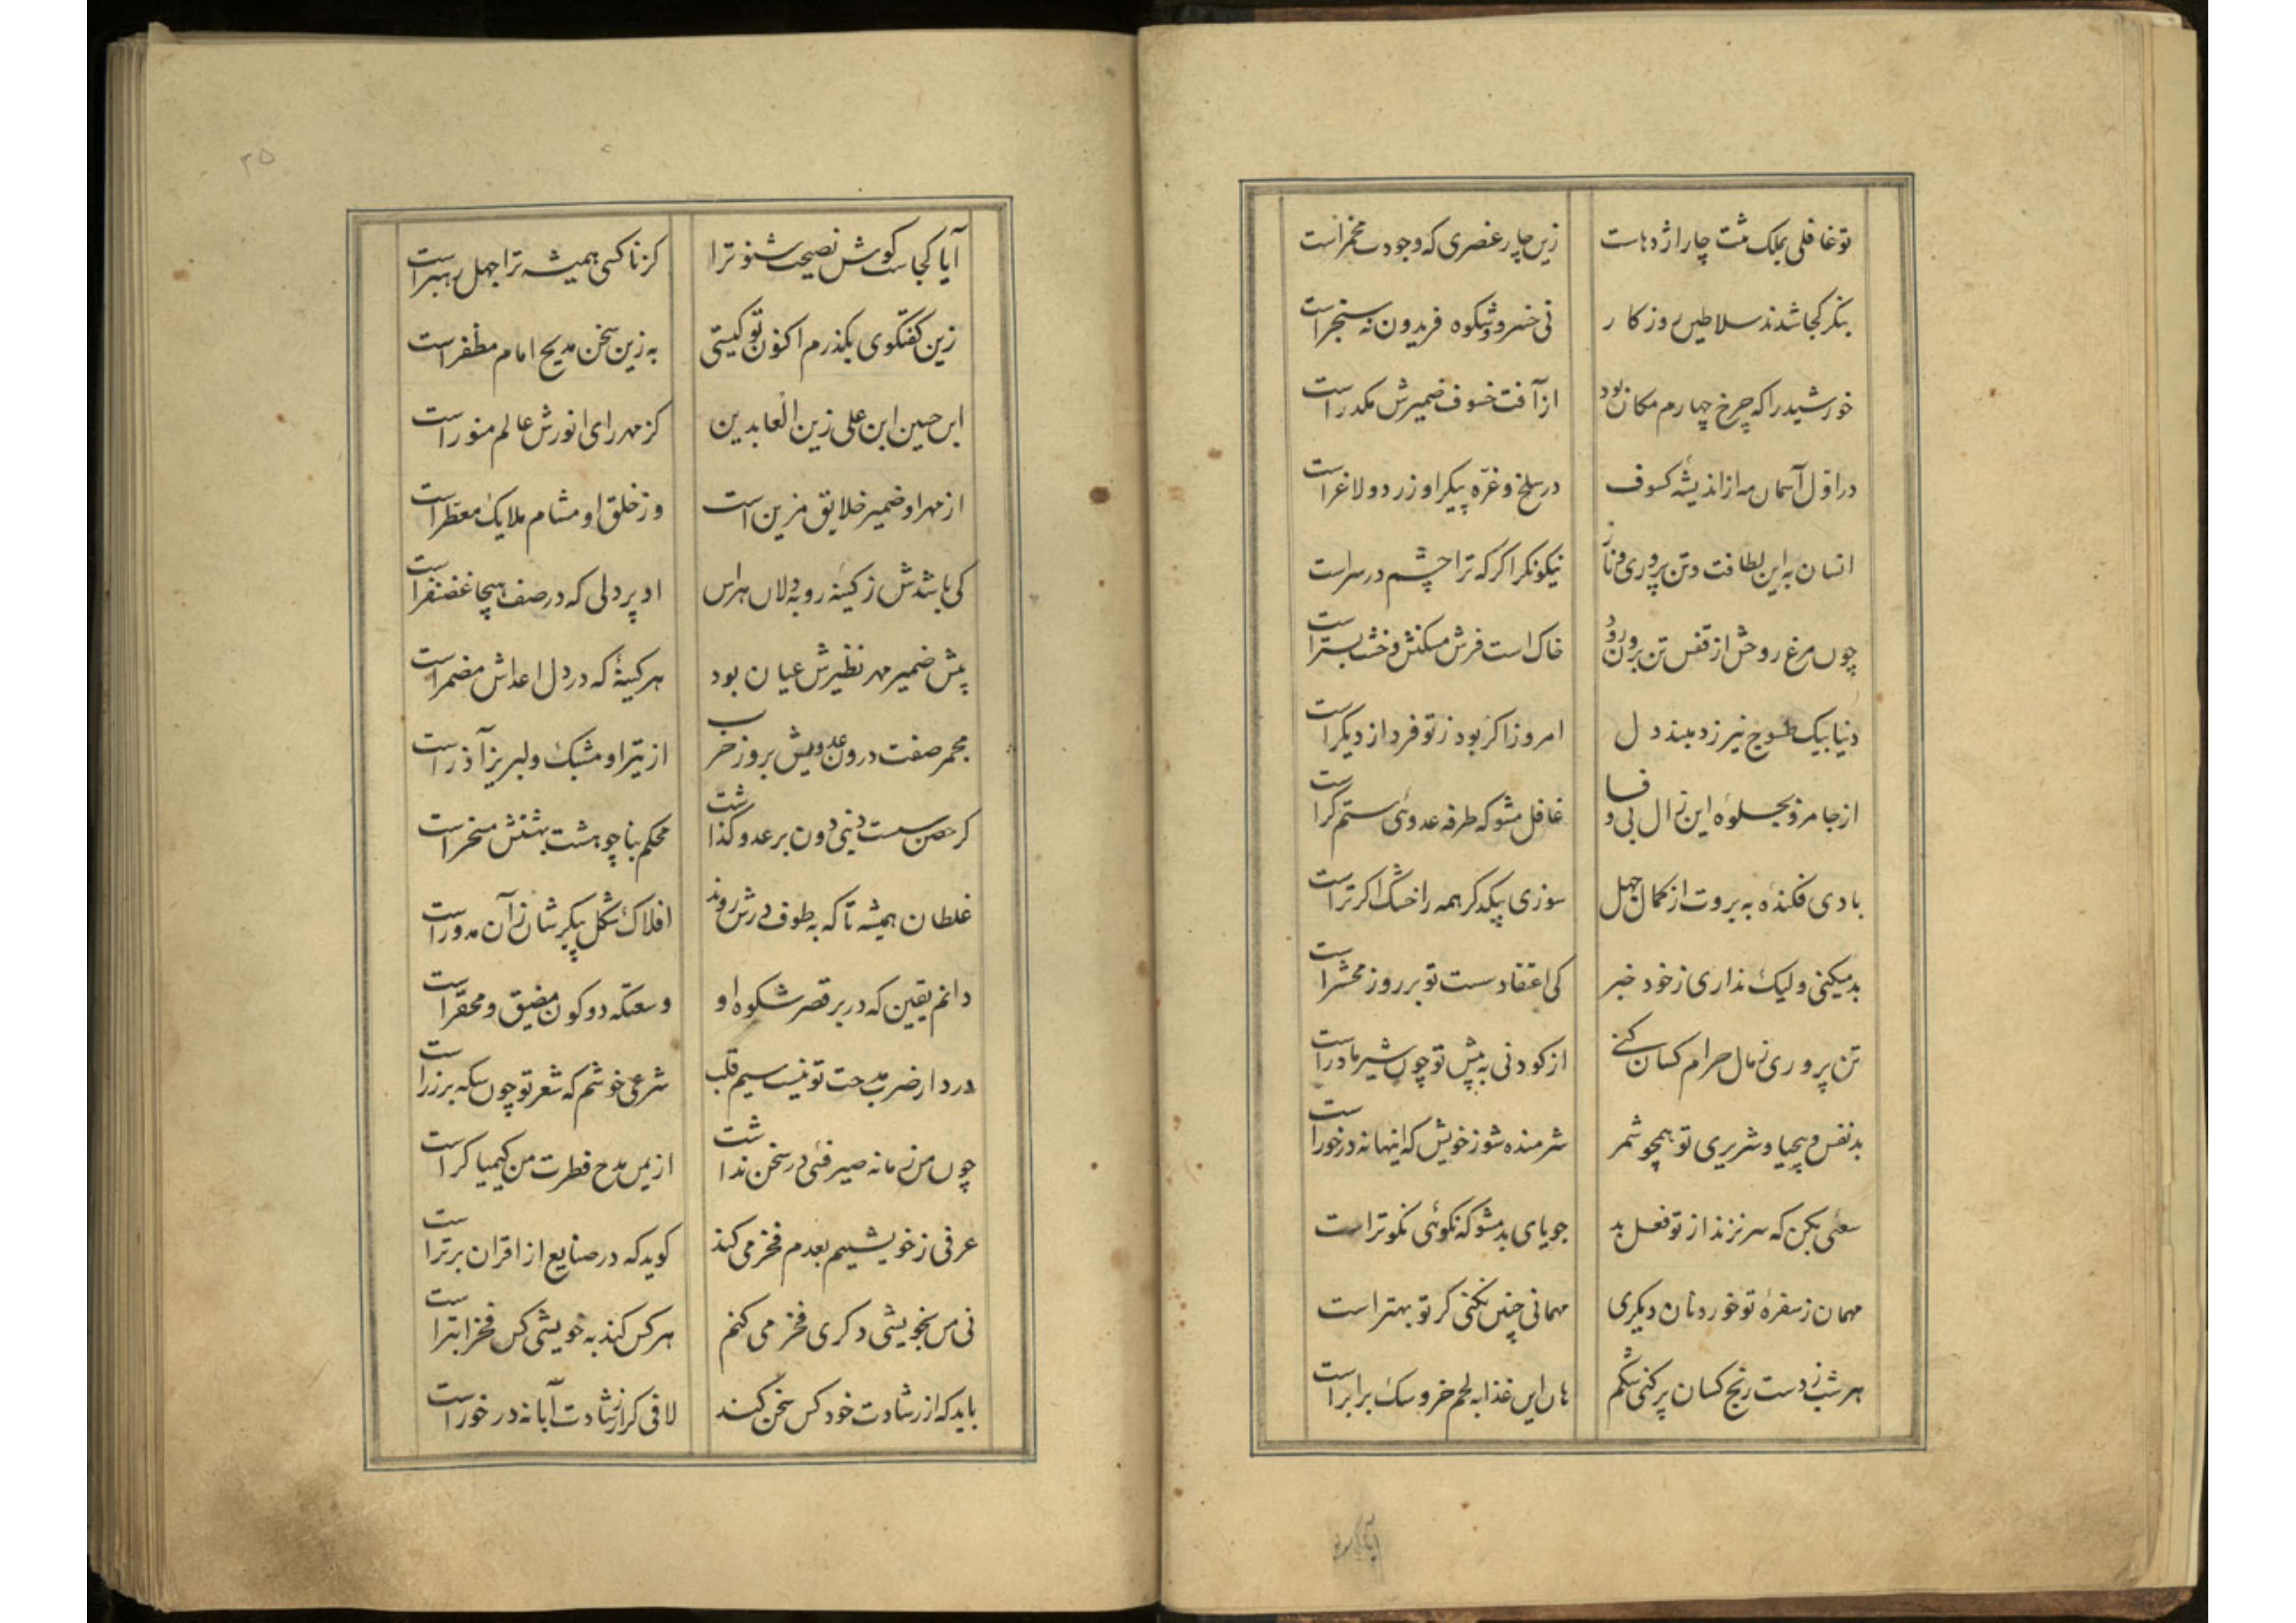 تو غافلی بملک مثت چار اژدهاست زین چار عنصری که وجودت مخمر است
بنگر کجا شدند سلاطین روزگار نی خسرو و شکوه فریدون نه سنجر است
خورشید را که چرخ چهارم مکان بود از آفت خسوف ضمیرش مکدر است
در اول آسمان مه از اندیشه کسوف در سلخ و غرّه پیکر او زرد و لاغر است
انسان به این لطافت و تن پروری و ناز نیکو نکر اکر که ترا چشم در سر است
چون مرغ روحش از قفس تن برون رود خاک است فرش مسکنش و خشت بستر است
دنیا بیک طسوج نیرزد مبند دل امروز اکر بود ز تو فردا ز دیکر است
از جا مرو بجلوه این زال بی وفا غافل مشو که طرفه عدوئی ستم کر است
بادی فکندهٔ به بروت از کمال جهل سوزی بیکدکر همه را خشک اکر تر است
بد میکنی ولیک نداری ز خود خبر کی اعتقاد سست تو بر روز محشر است
تن پروری ز مال حرام کسان کنی از کودنی به پیش تو چون شیر مادر است
بد نفس و بیحیا و شریری تو همچو شمر شرمنده شو ز خویش که اینها نه در خور است
سعئی بکن که سر نزند از تو فعل بد جویای بد مشو که نکوئی نکوتر است
مهمان ز سفرهٔ تو خورد نان دیکری مهمانی چنین نکنی کر تو بهتر است
هر شب ز دست رنج کسان پر کنی شکم هان این غذا به لحم خر و سک برابر است
آیا کجاست کوش نصیحت شنو ترا کز ناکسی همیشه ترا جهل رهبر است
زین کفتکوی بکذرم اکنون تو کیستی به زین سخن مدیح امام مظفر است
ابن حسین ابن علی زین العابدین کز مهر رای انورش عالم منور است
از مهر او ضمیر خلایق مزین است وز خلق او مشام ملایک معطّر است
کی باشدش ز کینه روبه دلان هراس او پردلی که در صف هیجا غضنفر است
پیش ضمیر مهر نظیرش عیان بود هر کینهٔ که در دل اعداش مضمر است
مجمر صفت درون عدویش بروز حرب از تیر او مشبک و لبریز آذر است
کر حصن سست دنیی دون بر عدو کذاشت محکم بنا چو هشت بهشتش مسخر است
غلطان همیشه تا که به طوف درش روند افلاک شکل پیکرشان زان مدور است
دانم یقین که در بر قصر شکوه او وسعتکه دو کون مضیق و محقّر است
در دار ضرب مدحت تو نیست سیم قلب شرعی خوشم که شعر تو چون سکه بر زر است
چون من زمانه صیرفئی در سخن نداشت از یمن مدح فطرت من کیمیا کر است
عرفی ز خویشیم بعدم فخر می کند کوید که در صنایع از اقران برتر است
نی من بخویشی دکری فخر می کنم هر کس کند به خویشی کس فخر ابتر است
باید که از رشادت خود کس سخن کند لافی کز ارشادت آبا نه در خور است
۳۵